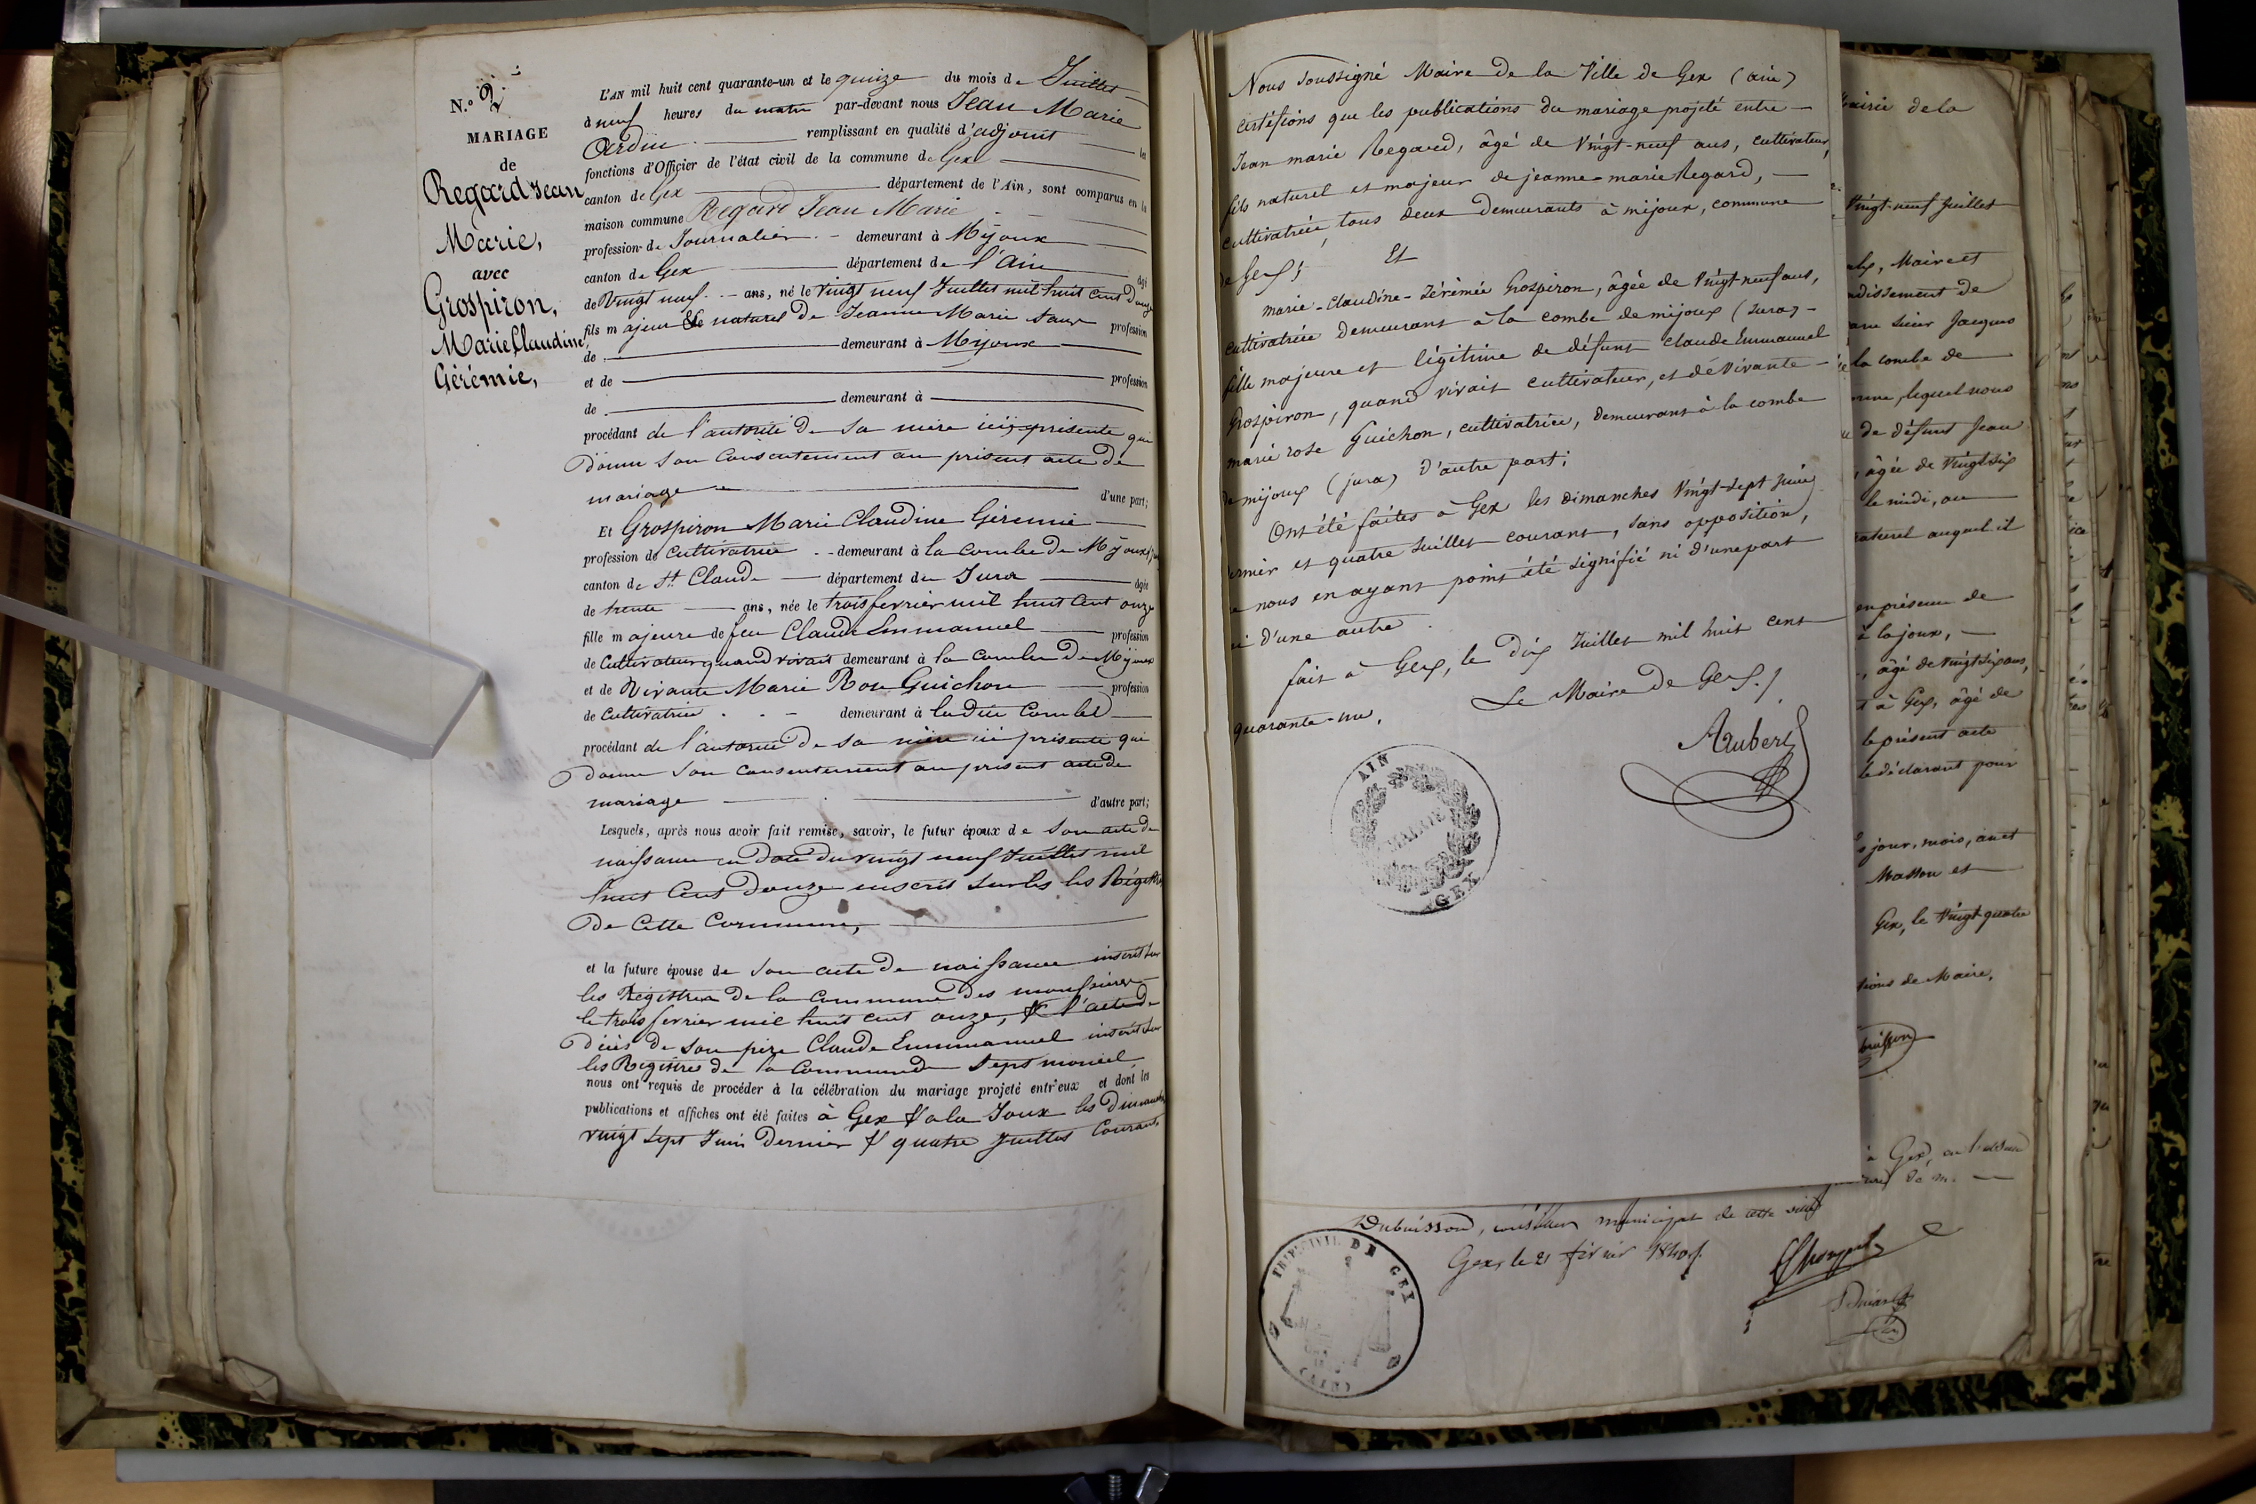 N.º 2
MARIAGE
de
Regard Jean
Marie,
avec
Grospiron,
Marie Claudine
Gérémie,
L'AN mil huit cent quarante-un et le quinze du mois de Juillet
à neuf heures du matin par-devant nous Jean Marie
remplissant en qualité d'adjoint les
fonctions d'Officier de l'état civil de la commune de Gex
canton de Gex département de l'Ain, sont comparus en la
maison commune Regard Jean Marie
profession de Journalier demeurant à Mijoux
canton de Gex département de l'Ain agé
de Vingt neuf ans, né le Vingt neuf Juillet mil huit cent Douze
fils majeur & naturel de Jeanne Marie profession
de demeurant à Mijoux
et de profession
de demeurant à
procédant de l'autorité de sa mère ici présente qui
donne son consentement au présent acte de
mariage d'une part;
Et Grospiron Marie Claudine Géremie
profession de Cultivatrice demeurant à la combe de Mijoux
canton de St Claude département du Jura agée
de trente ans, née le trois fevrier mil huit cent onze
fille majeure de feu Claude Emmanuel profession
de Cultivateur quand vivait demeurant à la Combe de Mijoux
et de Vivante Marie Rose Guichon profession
de Cultivatrice demeurant à ladite Combe
procédant de l'autorité de sa mère ici présente qui
donne son consentement au présent acte de
mariage d'autre part;
Lesquels, après nous avoir fait remise, savoir, le futur époux de son acte de
naissance en date du vingt neuf Juillet mil
huit Cent Douze inscrit sur les Régistres
de cette Commune,
et la future épouse de son acte de naissance inscrit sur
les Régistres de la Commune des moussières
le trois fevrier mil huit cent onze, & l'acte de
décès de son père Claude Emmanuel inscrit sur
les Régistres de la Commune de Septmoncel
nous ont requis de procéder à la célébration du mariage projeté entr'eux et dont les
publications et affiches ont été faites à Gex & à la Joux les Dimanches
vingt sept Juin Dernier & quatre Juillet Courant
Nous soussigné Maire de la Ville de Gex (ain)
certifions que les publications du mariage projeté entre
Jean marie Regard, âgé de Vingt-neuf ans, cultivateur,
fils naturel et majeur de jeanne-marie Regard,
cultivatrice, tous deux demeurants à mijoux, commune
de Gex;
Et
marie-claudine-Jérémie Grospiron, âgée de Vingt neuf ans,
cultivatrice demeurant à la combe de mijoux (Jura)
fille majeure et légitime de défunt Claude Emmanuel
Grospiron, quand vivait cultivateur, et de Vivante
marie rose Guichon, cultivatrice, demeurant à la combe
de mijoux (jura) d'autre part;
Ont été faites à Gex les dimanches Vingt-sept juin
dernier et quatre Juillet courant, sans opposition,
nous en ayant point été signifié ni d'une part
ni d'une autre.
fait à Gex, le dix Juillet mil huit cent
quarante-un.
Le Maire de Gex.
Aubert
AIN
MAIRIE
GEX
Mairie de la
Vingt-neuf Juillet
Maire et
arrondissement de
sieur Jacques
la combe de
lequel nous
de défunt Jean
âgée de Vingt-six
le midi, au
naturel auquel il
en présence de
à la joux,
âgé de Vingt six ans,
à Gex, âgé de
le présent acte
le déclarant pour
jour, mois, an et
Masson et
Gex, le Vingt-quatre
fonctions de Maire,
Dubuisson, conseiller municipal de cette ville
Gex, le 21 février 1840
TRIB. CIVIL DE GEX
(AIN)